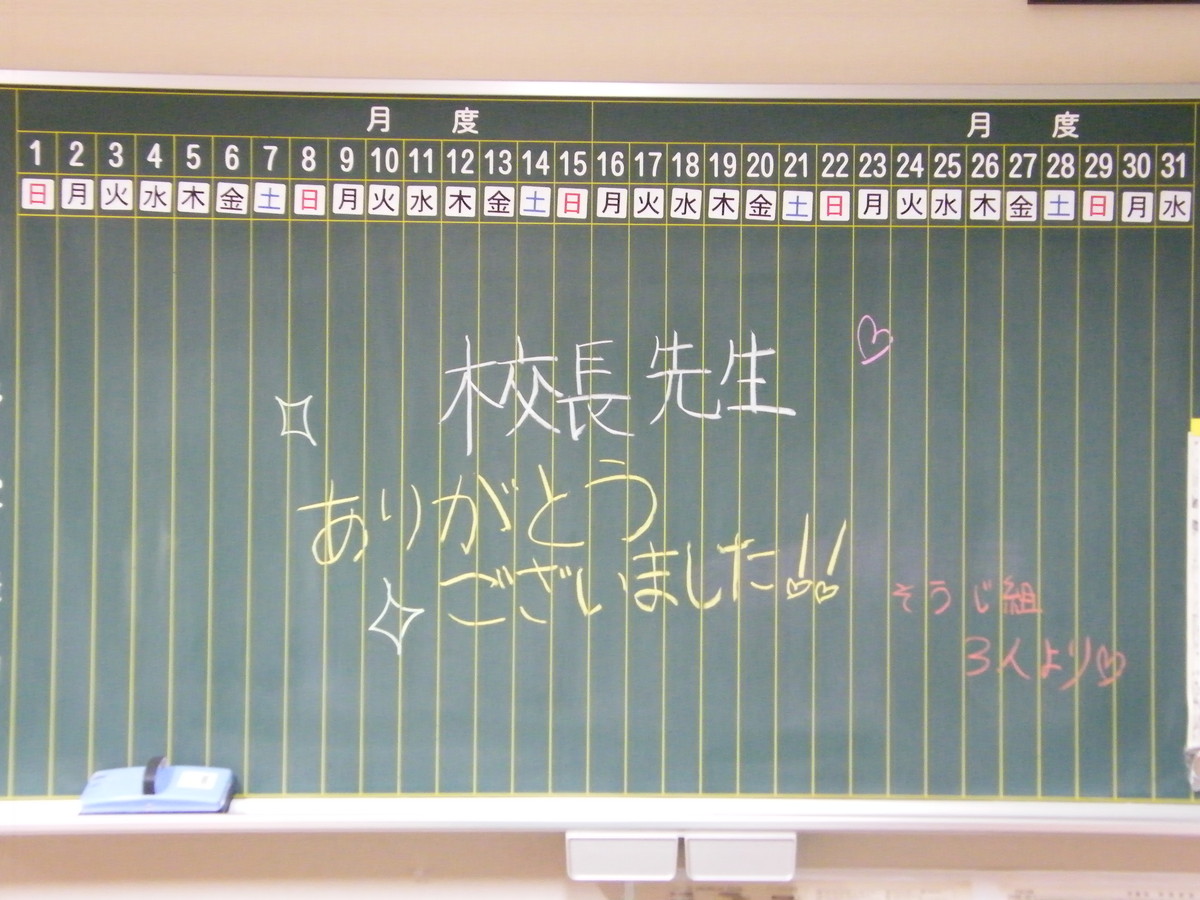 月 度 月 度
1 2 3 4 5 6 7 8 9 10 11 12 13 14 15 16 17 18 19 20 21 22 23 24 25 26 27 28 29 30 31
日 月 火 水 木 金 土 日 月 火 水 木 金 土 日 月 火 水 木 金 土 日 月 火 水 木 金 土 日 月 水
校長先生
ありがとう
ございました!!
そうじ組
3人より